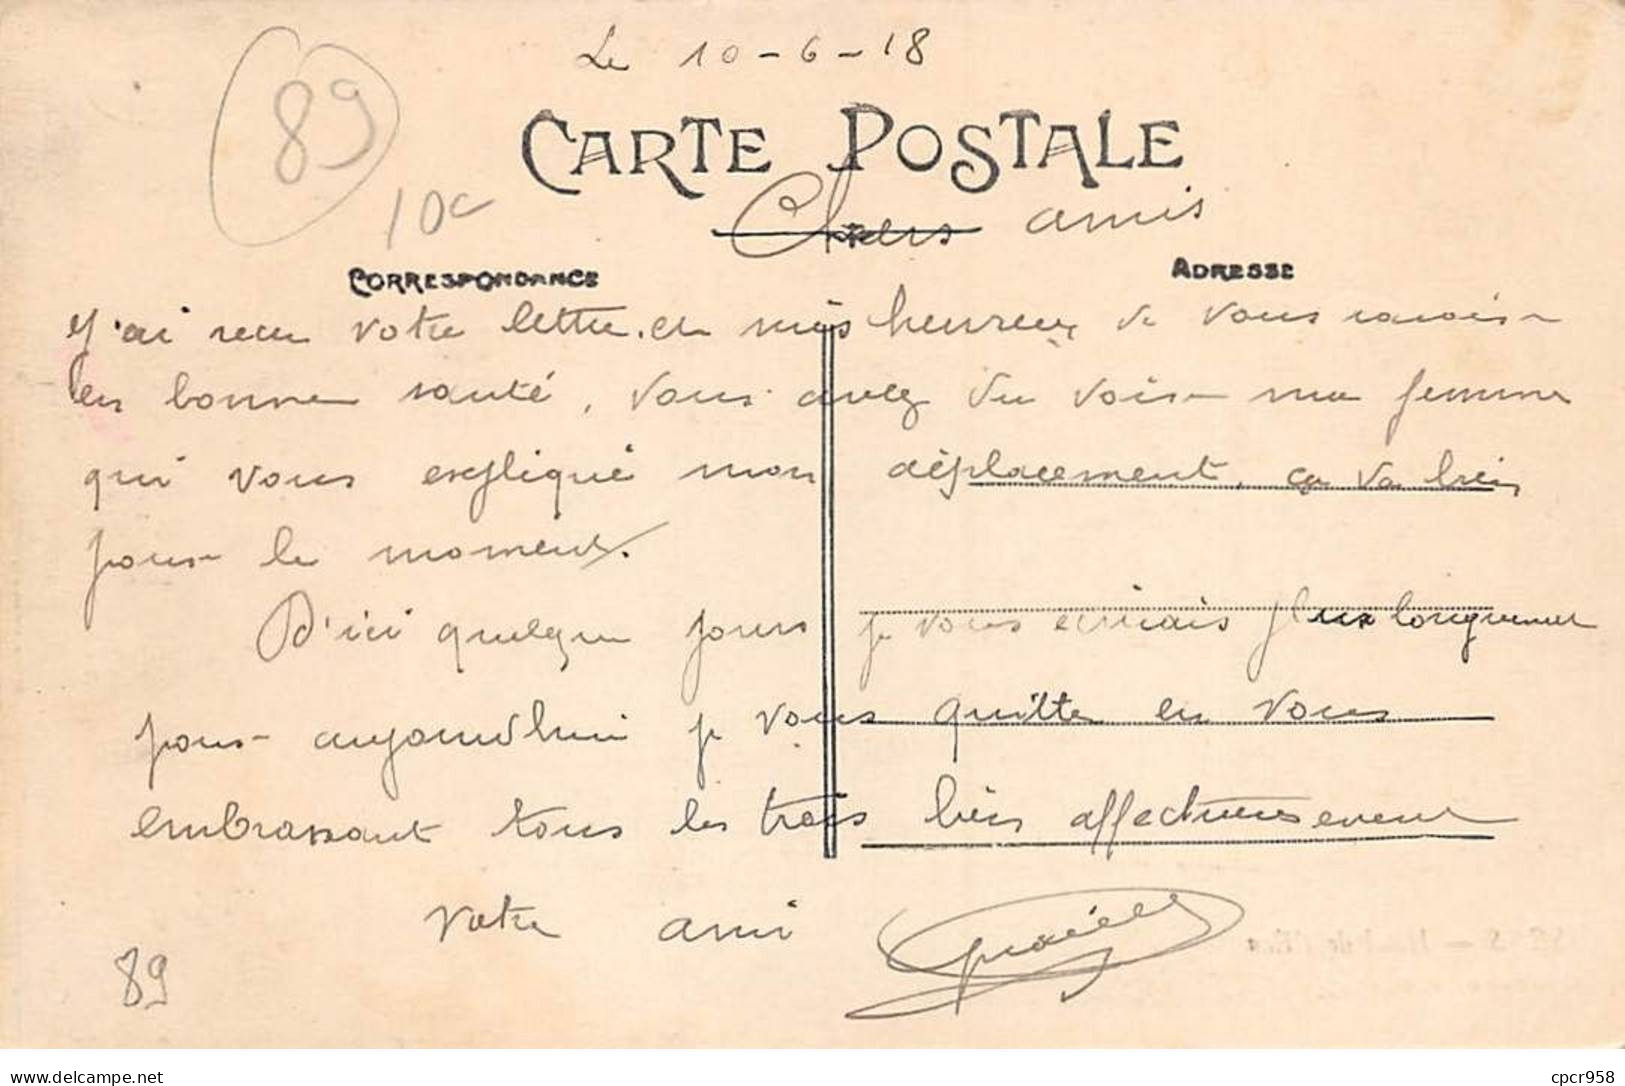 Le 10-6-18
89
CARTE POSTALE
10c
Chers amis
CORRESPONDANCE
ADRESSE
J'ai reçu votre lettre. et suis heureux de vous savoir
en bonne santé, vous avez du voir ma femme
qui vous expliqué mon déplacement, ça va bien
pour le moment.
D'ici quelque jours je vous écriais plus longuement
pour aujourd'hui je vous quitte en vous
embrassant tous les trois bien affectueusement
Votre ami
89
delcampe.net
cpcr958